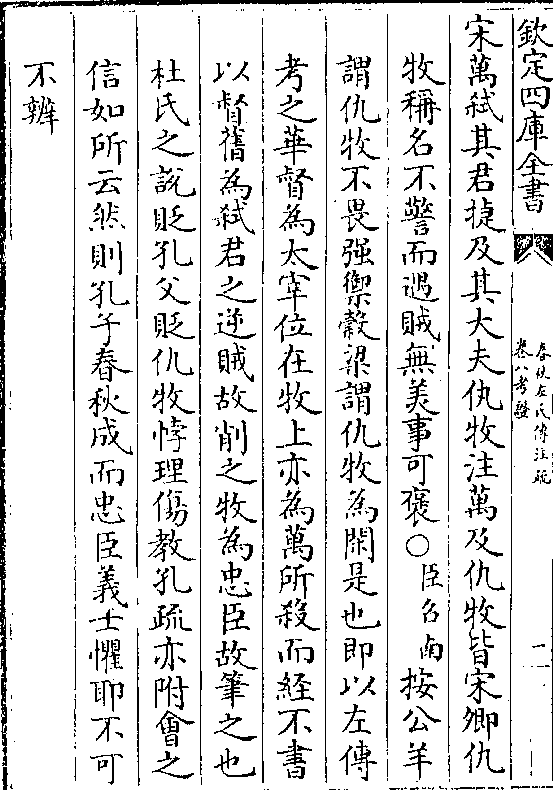 欽定四庫全書
春秋左氏傳注疏
卷八考證
一
宋萬弑其君捷及其大夫仇牧注萬及仇牧皆宋卿仇
牧稱名不警而遇賊無美事可褒○臣召南按公羊
謂仇牧不畏强禦糓梁謂仇牧為閑是也即以左傳
考之華督為太宰位在牧上亦為萬所殺而經不書
以督舊為弑君之逆賊故削之牧為忠臣故筆之也
杜氏之說貶孔父貶仇牧悖理傷教孔疏亦附㑹之
信如所云然則孔子春秋成而忠臣義士懼耶不可
不辨